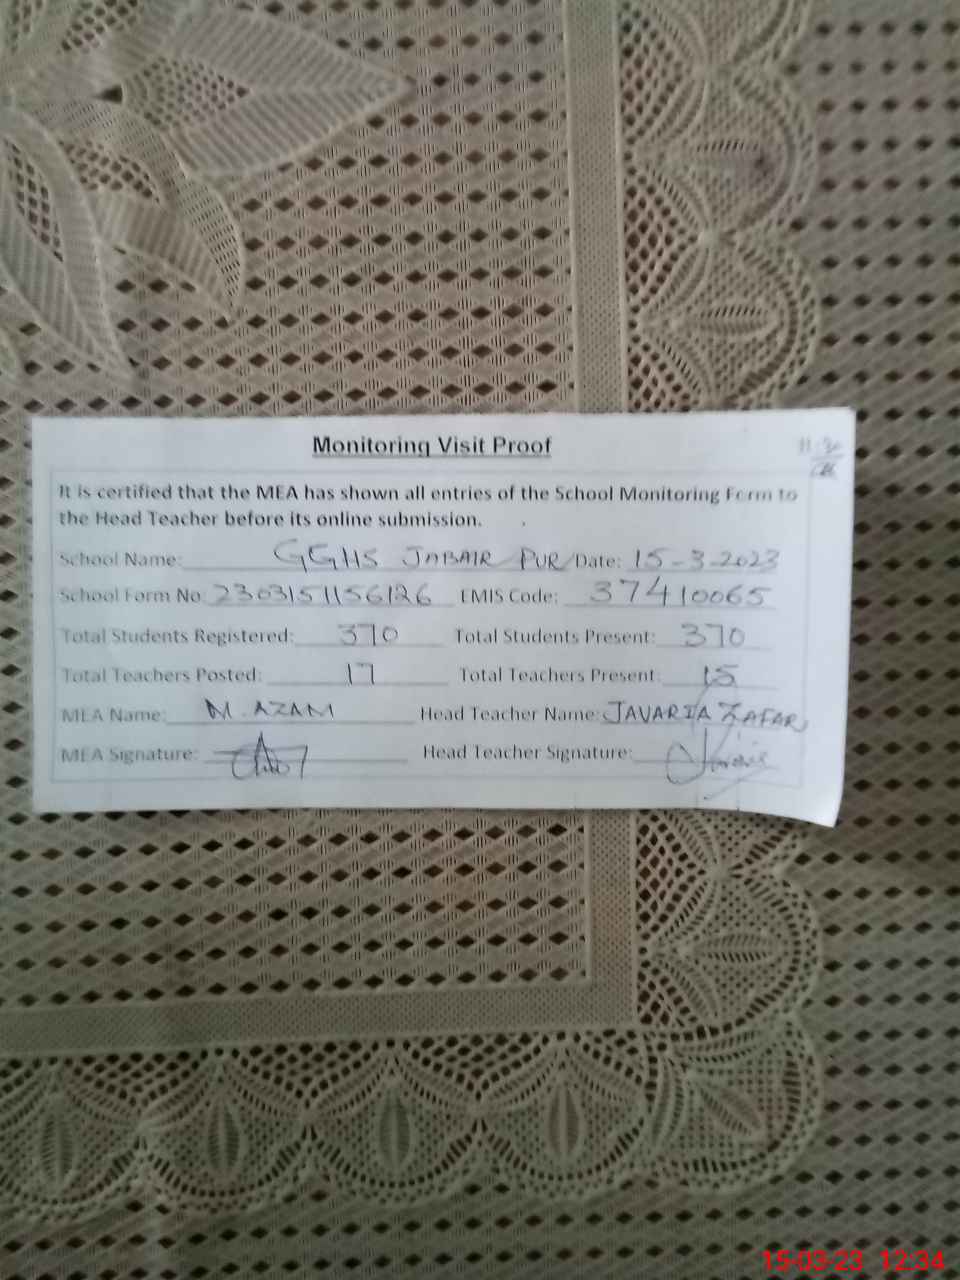 Monitoring Visit Proof
11-30
It is certified that the MEA has shown all entries of the School Monitoring Form to
the Head Teacher before its online submission.
School Name: GGHS JABAIR PUR Date: 15-3-2023
School Form No: 2303151156126 EMIS Code: 37410065
Total Students Registered: 370 Total Students Present: 370
Total Teachers Posted: 17 Total Teachers Present: 15
MEA Name: M. AZAM Head Teacher Name: JAVARIA ZAFAR
MEA Signature: Head Teacher Signature:
15-03-23 12:34